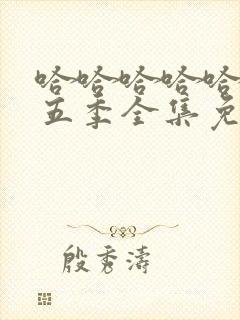 哈哈哈哈哈
五季全集免
殷秀涛